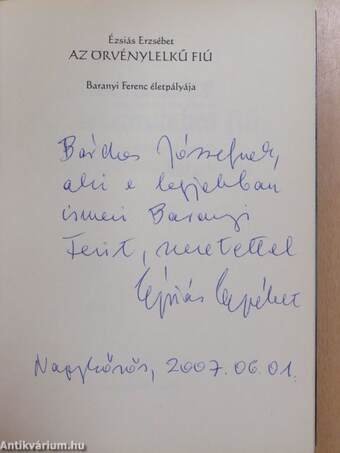 Ézsiás Erzsébet
AZ ÖRVÉNYLELKŰ FIÚ
Baranyi Ferenc életpályája
Bárdos Józsefnek,
aki a legjobban
ismeri Baranyi
Ferit, szeretettel
Ézsiás Erzsébet
Nagykőrös, 2007.06.01.
Antikvárium.hu